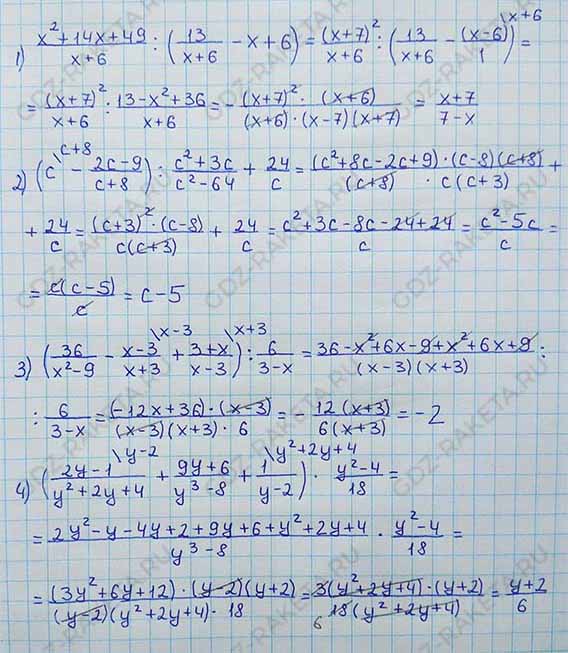 \x+6
1) (x²+14x+49)/(x+6) : (13/(x+6) - x + 6) = (x+7)²/(x+6) : (13/(x+6) - (x-6)/1) =
= (x+7)²/(x+6) : (13-x²+36)/(x+6) = - (x+7)² · (x+6)/((x+6)·(x-7)(x+7)) = (x+7)/(7-x)
\c+8
2) (c - (2c-9)/(c+8)) : (c²+3c)/(c²-64) + 24/c = (c²+8c-2c+9)·(c-8)(c+8)/((c+8) · c(c+3)) +
+ 24/c = (c+3)²·(c-8)/(c(c+3)) + 24/c = (c²+3c-8c-24+24)/c = (c²-5c)/c =
= c(c-5)/c = c-5
\x-3 \x+3
3) (36/(x²-9) - (x-3)/(x+3) + (3+x)/(x-3)) : 6/(3-x) = (36-x²+6x-9+x²+6x+9)/((x-3)(x+3)) :
: 6/(3-x) = (-12x+36)·(x-3)/((x-3)(x+3)·6) = - 12(x+3)/(6(x+3)) = -2
\y-2 \y²+2y+4
4) ((2y-1)/(y²+2y+4) + (9y+6)/(y³-8) + 1/(y-2)) · (y²-4)/18 =
= (2y²-y-4y+2+9y+6+y²+2y+4)/(y³-8) · (y²-4)/18 =
= (3y²+6y+12)·(y-2)(y+2)/((y-2)(y²+2y+4)·18) = 3(y²+2y+4)·(y+2)/(18(y²+2y+4)) = (y+2)/6
6
GDZ-RAKETA.RU